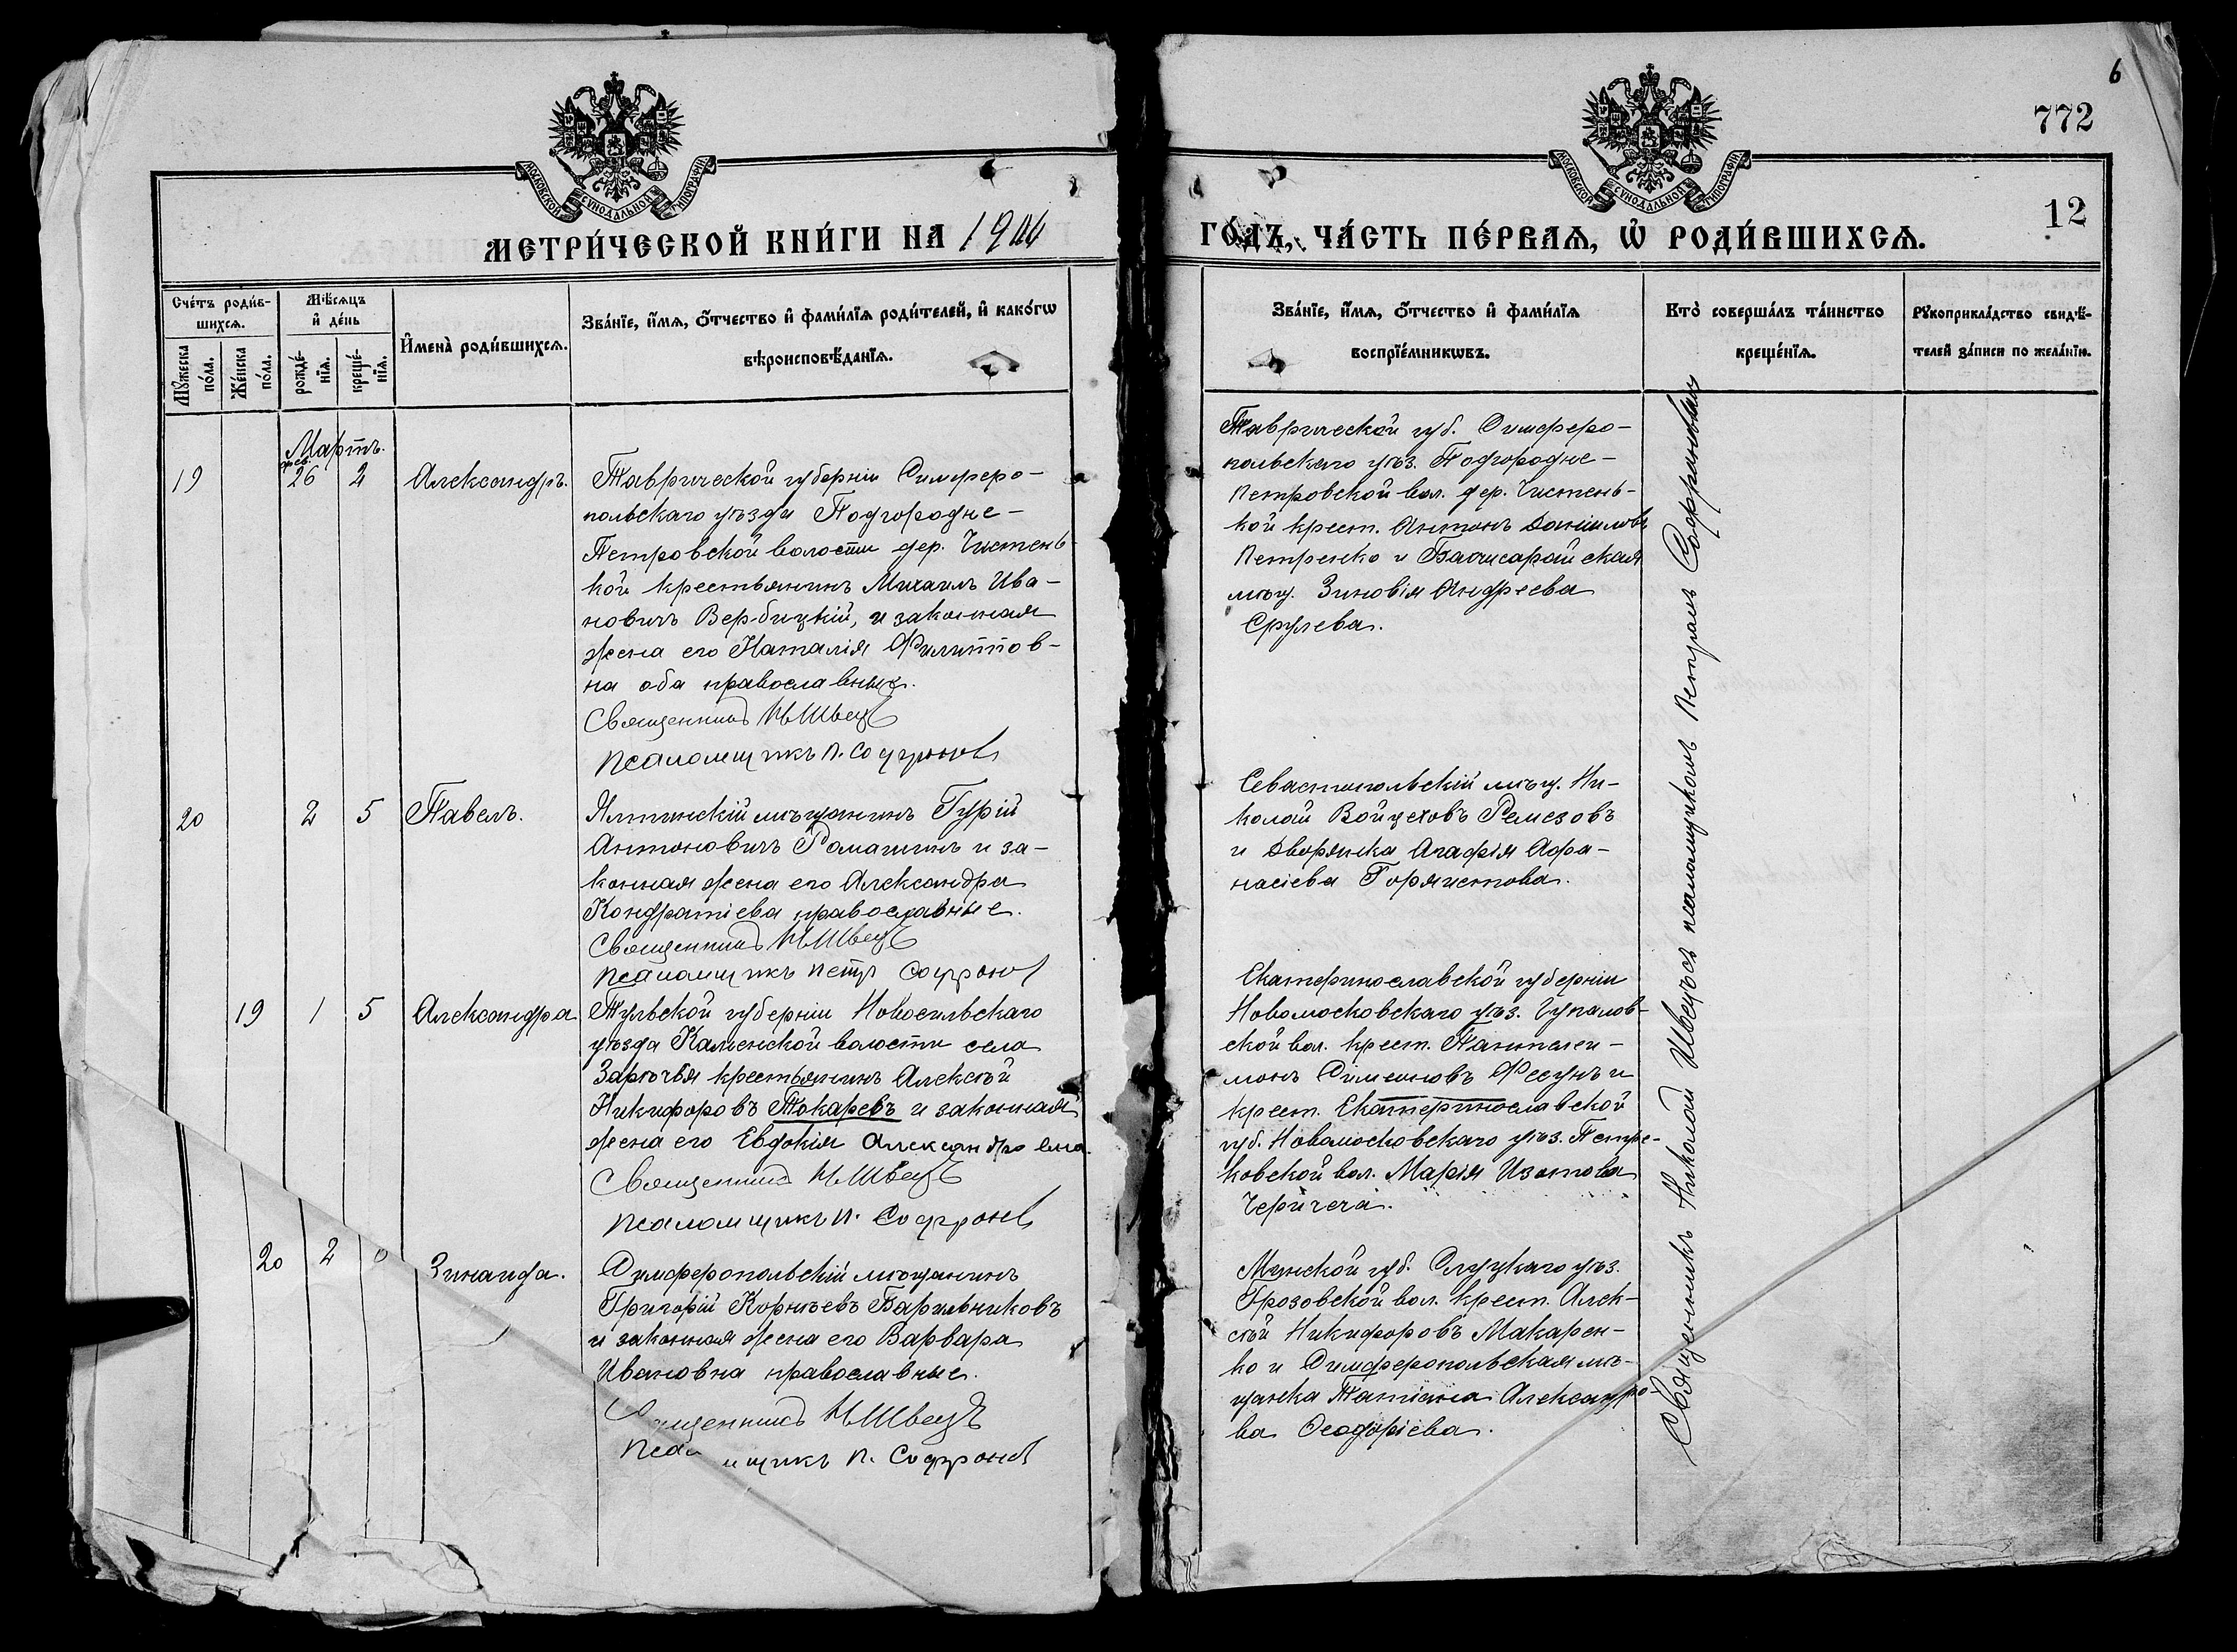 6
772
12
МОСКОВСКОЙ СѴНОДАЛЬНОЙ ТИПОГРАФІИ
МЕТРИ́ЧЕСКОЙ КНИ́ГИ НА 19
МОСКОВСКОЙ СѴНОДАЛЬНОЙ ТИПОГРАФІИ
ГО́ДЪ, ЧА́СТЬ ПЕ́РВАѦ, Ѽ РОДИ́ВШИХСѦ.
Сче́тъ роди́в-
шихсѧ.
Мꙋ́жеска по́ла.
Же́нска по́ла.
Мѣ́сѧцъ
и҆ де́нь
рожде́-
нїѧ.
креще́-
нїѧ.
И҆мена̀ роди́вшихсѧ.
Зва́нїе, и҆́мѧ, ѻ҆́тчество и҆ фами́лїѧ роди́телей, и҆ како́гѡ
вѣроисповѣ́данїѧ.
Зва́нїе, и҆́мѧ, ѻ҆́тчество и҆ фами́лїѧ
воспрїе́мникѡвъ.
Кто̀ соверша́лъ та́инство
креще́нїѧ.
Рꙋкоприкла́дство свидѣ́-
телей за́писи по жела́нїю.
Мартъ.
фев.
19 26 2 Александръ.
Таврической губерніи Симферо-
польскаго уѣзда Подгородне-
Петровской волости дер. Чистень-
кой крестьянинъ Михаилъ Ива-
новичъ Вербицкій, и законная
жена его Наталія Филиппов-
на оба православныя.
Священникъ Н. Швецъ
Псаломщикъ П. Софроновъ
Таврической губ. Симферо-
польскаго уѣз. Подгородне-
Петровской вол. дер. Чистень-
кой крест. Антонъ Даниловъ
Петренко и Бахчисарайская
мѣщ. Зиновія Андреева
20 2 5 Павелъ.
Ялтинскій мѣщанинъ Гурій
Антоновичъ Ромашинъ и за-
конная жена его Александра
Кондратіева православные.
Священникъ Н. Швецъ
Псаломщикъ Петръ Софроновъ
Севастопольскій мѣщ. Ни-
колай Войцеховъ Ремезовъ
и дворянка Агафія Афа-
насіева
19 1 5 Александра
Тульской губерніи Новосильскаго
уѣзда Каменской волости села
Зарѣчья крестьянинъ Алексѣй
Никифоровъ Токаревъ и законная
жена его Евдокія Александровна.
Священникъ Н. Швецъ
Псаломщикъ П. Софроновъ
Екатеринославской губерніи
Новомосковскаго уѣз. Чупалов-
ской вол. крест. Пантелей-
монъ Симеоновъ Фесунъ и
крест. Екатеринославской
губ. Новомосковскаго уѣз. Петри-
ковской вол. Марія Изотова
20 2 Зинаида.
Симферопольскій мѣщанинъ
Григорій Корнѣевъ Барильниковъ
и законная жена его Варвара
Ивановна православные.
щенникъ Н. Швецъ
Пса щикъ П. Софроновъ
Минской губ. Слуцкаго уѣз.
Грозовской вол. крест. Алек-
сѣй Никифоровъ Макарен-
ко и Симферопольская мѣ-
щанка Татіана Александро-
ва Ѳеодоріева.
Священникъ Николай Швецъ съ псаломщикомъ Петромъ Софроновымъ